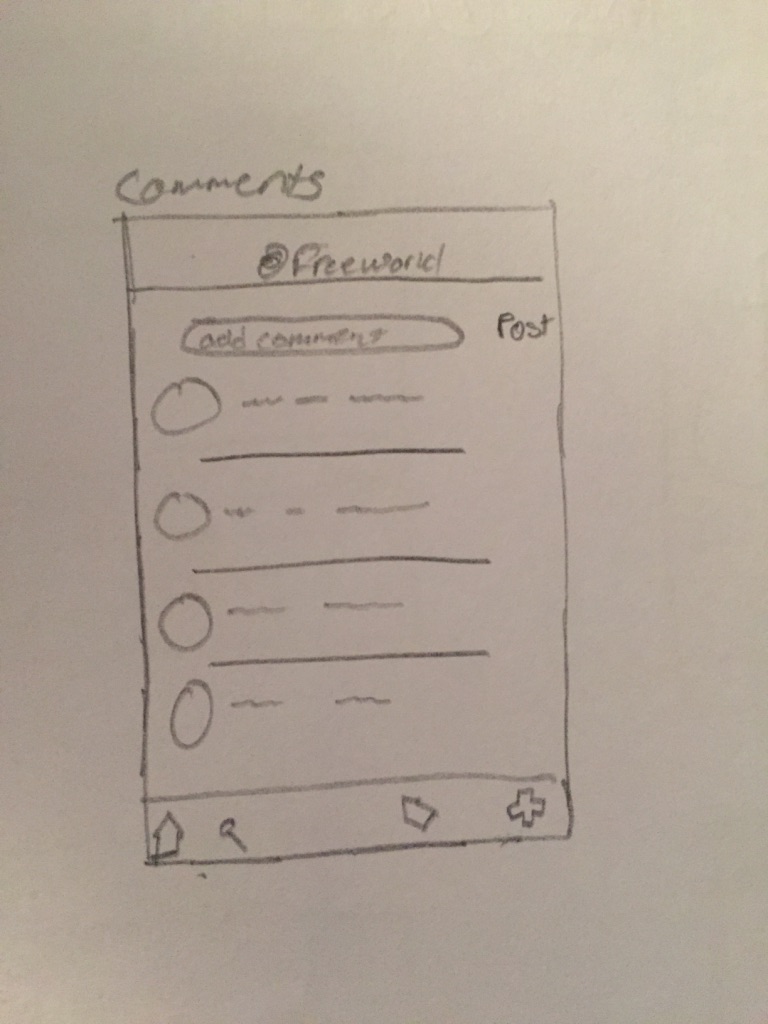 Comments
@freeworld
add comment
Post